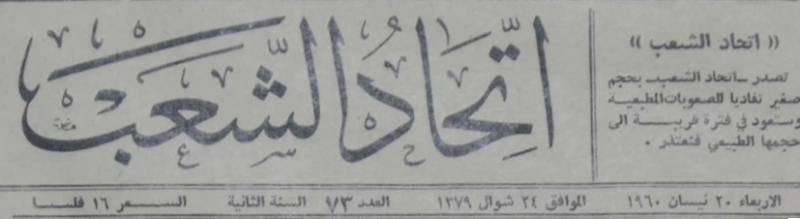 اتحاد الشعب
(( اتحاد الشعب ))
تصدر _اتحاد الشعب_ بحجم
صغير تفاديا للصعوبات المطبعية
وستعود في فترة قريبة الى
حجمها الطبيعي فنعتذر .
الاربعاء ٢٠ نيسان ١٩٦٠ الموافق ٢٤ شوال ١٣٧٩ العدد ٧٣ السنة الثانية السعر ١٦ فلسا